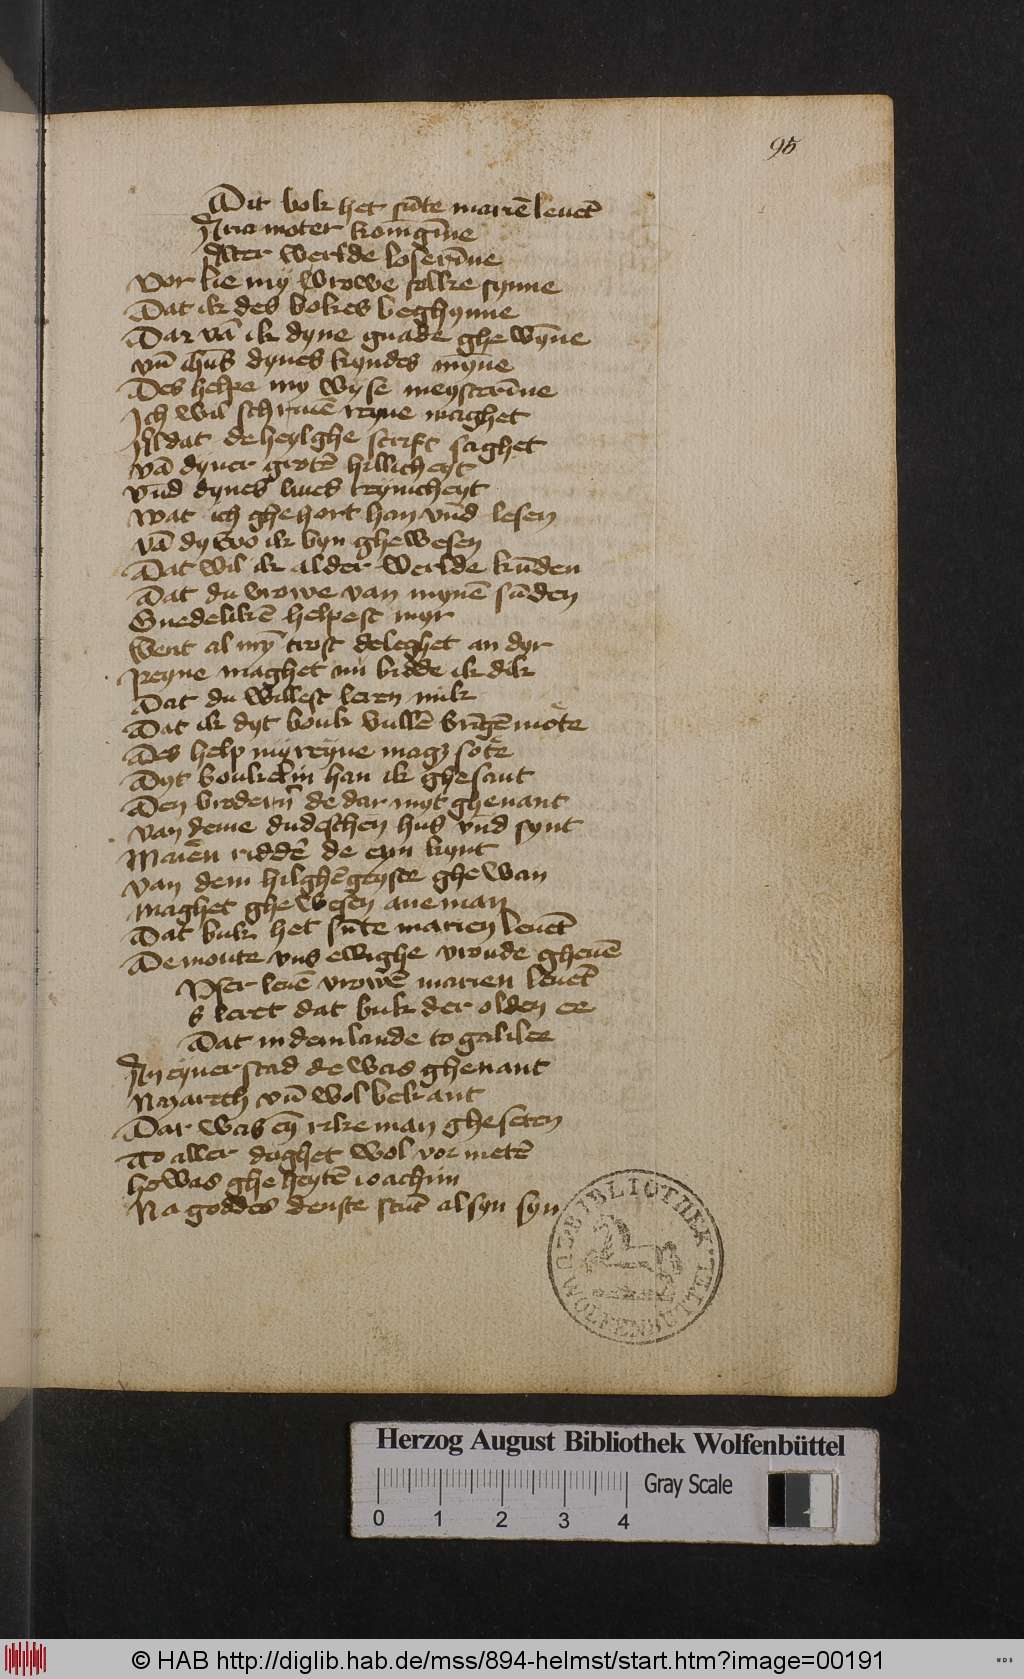 95
Dit bok het sūte mariē leuēt
Aria moter konīgīne
Aller werlde loserīne
vor lie my vrowe solke synne
Dat ik des bokes beghynne
Dar vā ik dyne gnade ghe wȳne
vn̄ ih̄us dynes kyndes mȳne
Des helpe my wyse meysterīne
Ich wil schriuē reyne maghet
Al dat de heylghe scrift saghet
vā dyner grotē hillicheyt
vn̄d dynes liues reynicheyt
wat ich ghehort han vn̄d lesen
vā dy wo ik byn ghewesen
Dat wil ik al der werlde kūden
Dat du vrowe van mynē sūden
Gnedelikē helpest myr
Went al mȳ trost de leghet an dyr
Reyne maghet nu bidde ik dik
Dat du willest leren mik
Dat ik dyt bouk vullē brīgē mote
Des help my reyne magȝ sote
Dyt boukelin han ik ghesant
Den broderen de dar myt ghenant
van deme dudeschen hus vn̄d synt
Marien riddē de eyn kynt
van dem hilghē geyste ghewan
Maghet ghewesen ane man
Dat buk het sūte marien leuēt
De monte vns ewighe vroude gheuē
Nser leuē vrowē marien leuēt
S leret dat buk der olden ee
Dat in dem lande to galilee
In eyner stad de was ghenant
Nazareth vn̄ wol bekant
Dar was eȳ rike man gheseten
To aller doghet wol vor metē
he was ghe heytē ioachim
Na goddes denste stūt al syn syn
BIBLIOTHEK
Herzog August Bibliothek Wolfenbüttel
Gray Scale
0 1 2 3 4
© HAB http://diglib.hab.de/mss/894-helmst/start.htm?image=00191